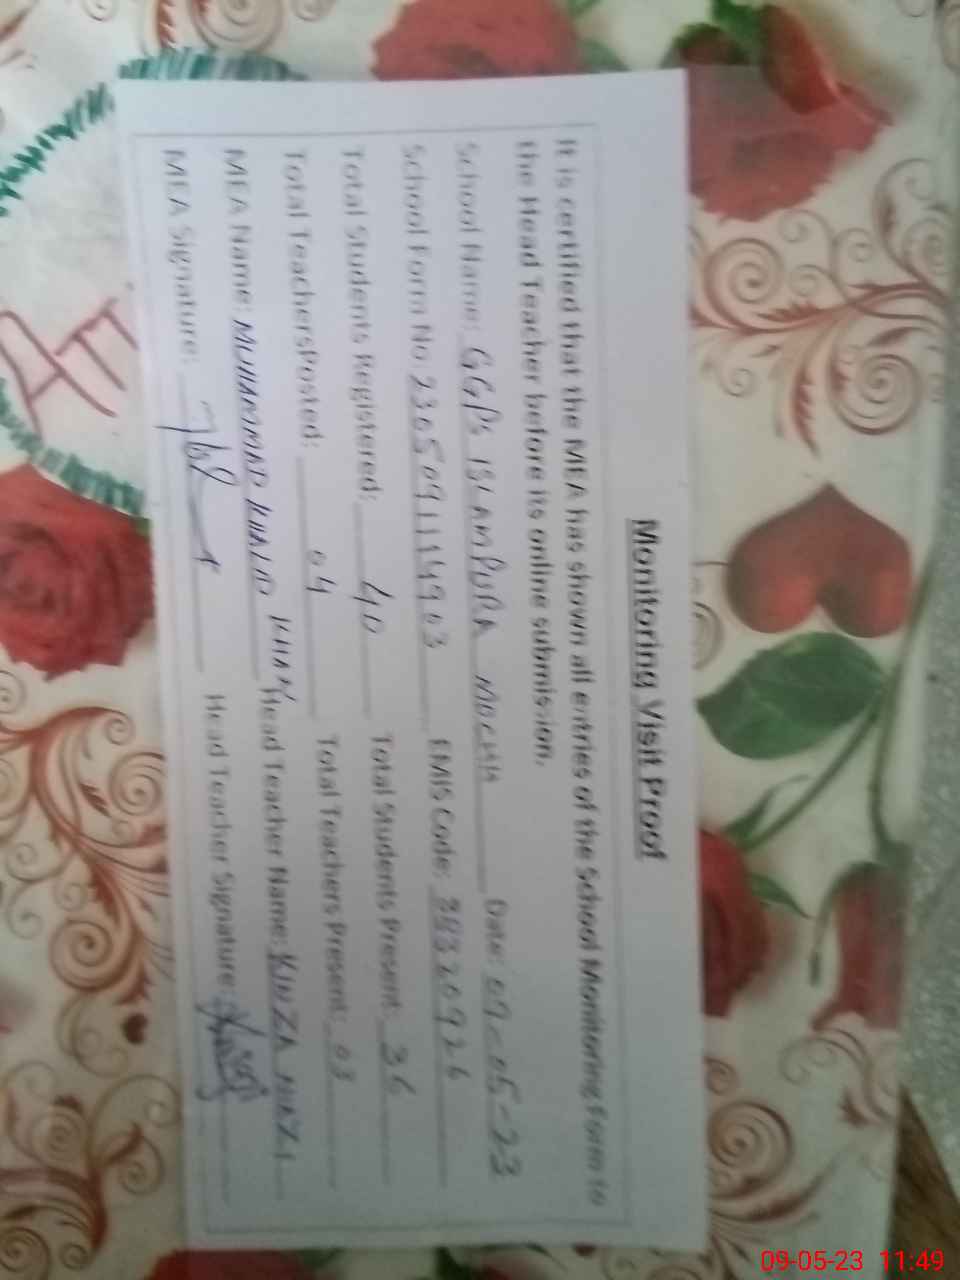 Monitoring Visit Proof
It is certified that the MEA has shown all entries of the School Monitoring Form to
the Head Teacher before its online submission.
School Name: GGPS ISLAMPURA MOCHH Date: 09-05-23
School Form No. 2305091114963 EMIS Code: 38320926
Total Students Registered: 40 Total Students Present: 36
Total Teachers Posted: 04 Total Teachers Present: 03
MEA Name: MUHAMMAD KHALID KHAN Head Teacher Name: KINZA NIAZI
MEA Signature: Head Teacher Signature:
09-05-23 11:49